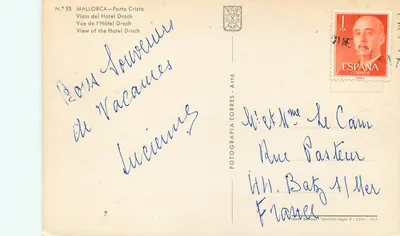 N.º 53 MALLORCA - Porto Cristo
Vista del Hotel Drach
Vue de l'Hôtel Drach
View of the Hotel Drach
Bons Souvenirs
de Vacances
Lucienne
FOTOGRAFIA TORRES - Artá
1
PTA
ESPAÑA
CORREOS
M et Mme Le Cam
Rue Pasteur
44. Batz s/Mer
France